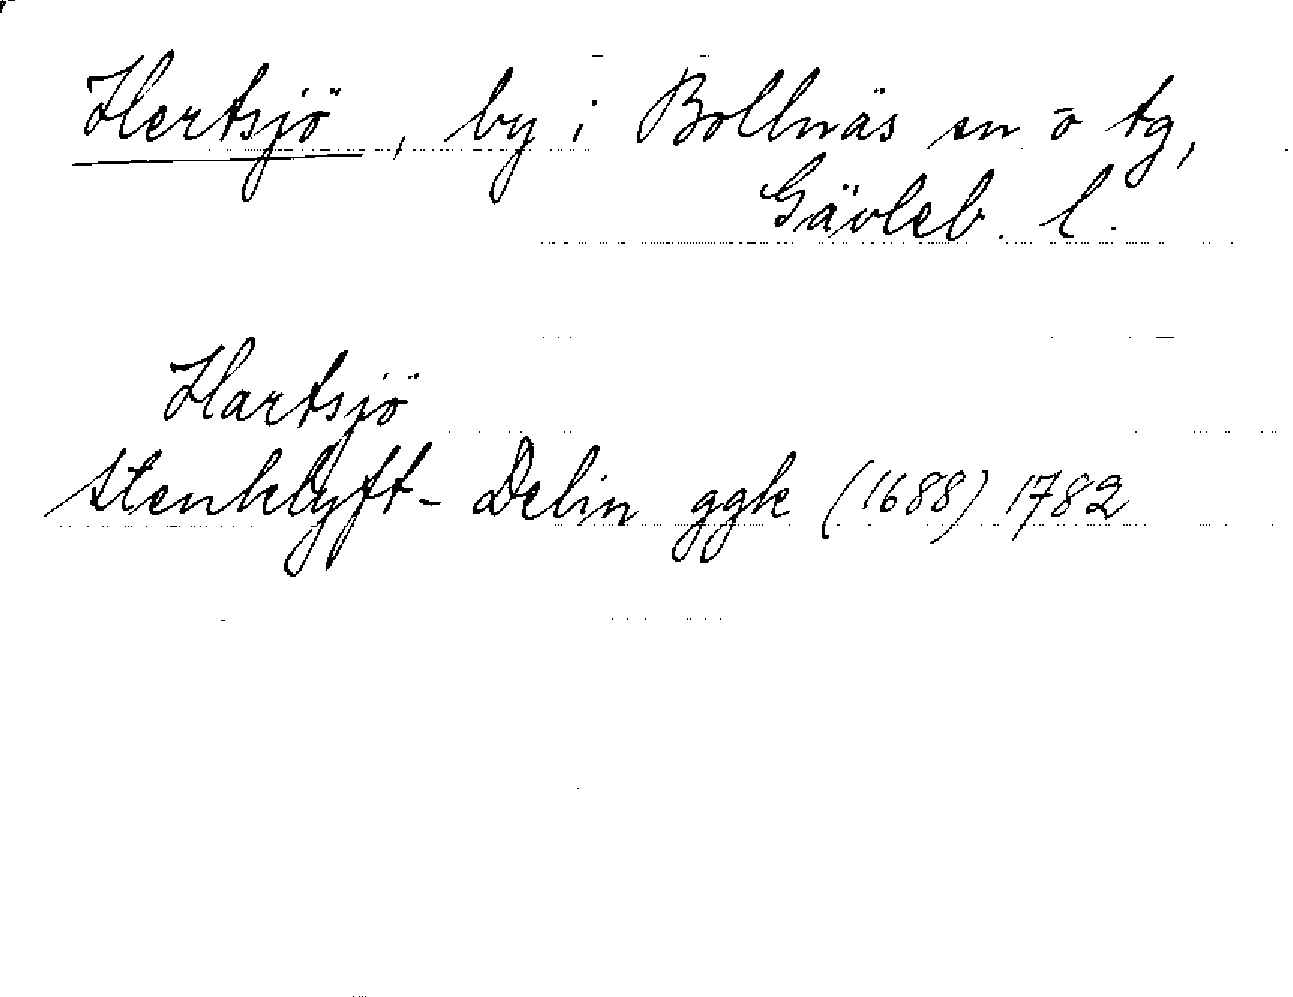 Hertsjö, by i Bollnäs sn o tg,
Gävleb. l.
Hartsjö
Stenklyft- Delin ggk (1688) 1782